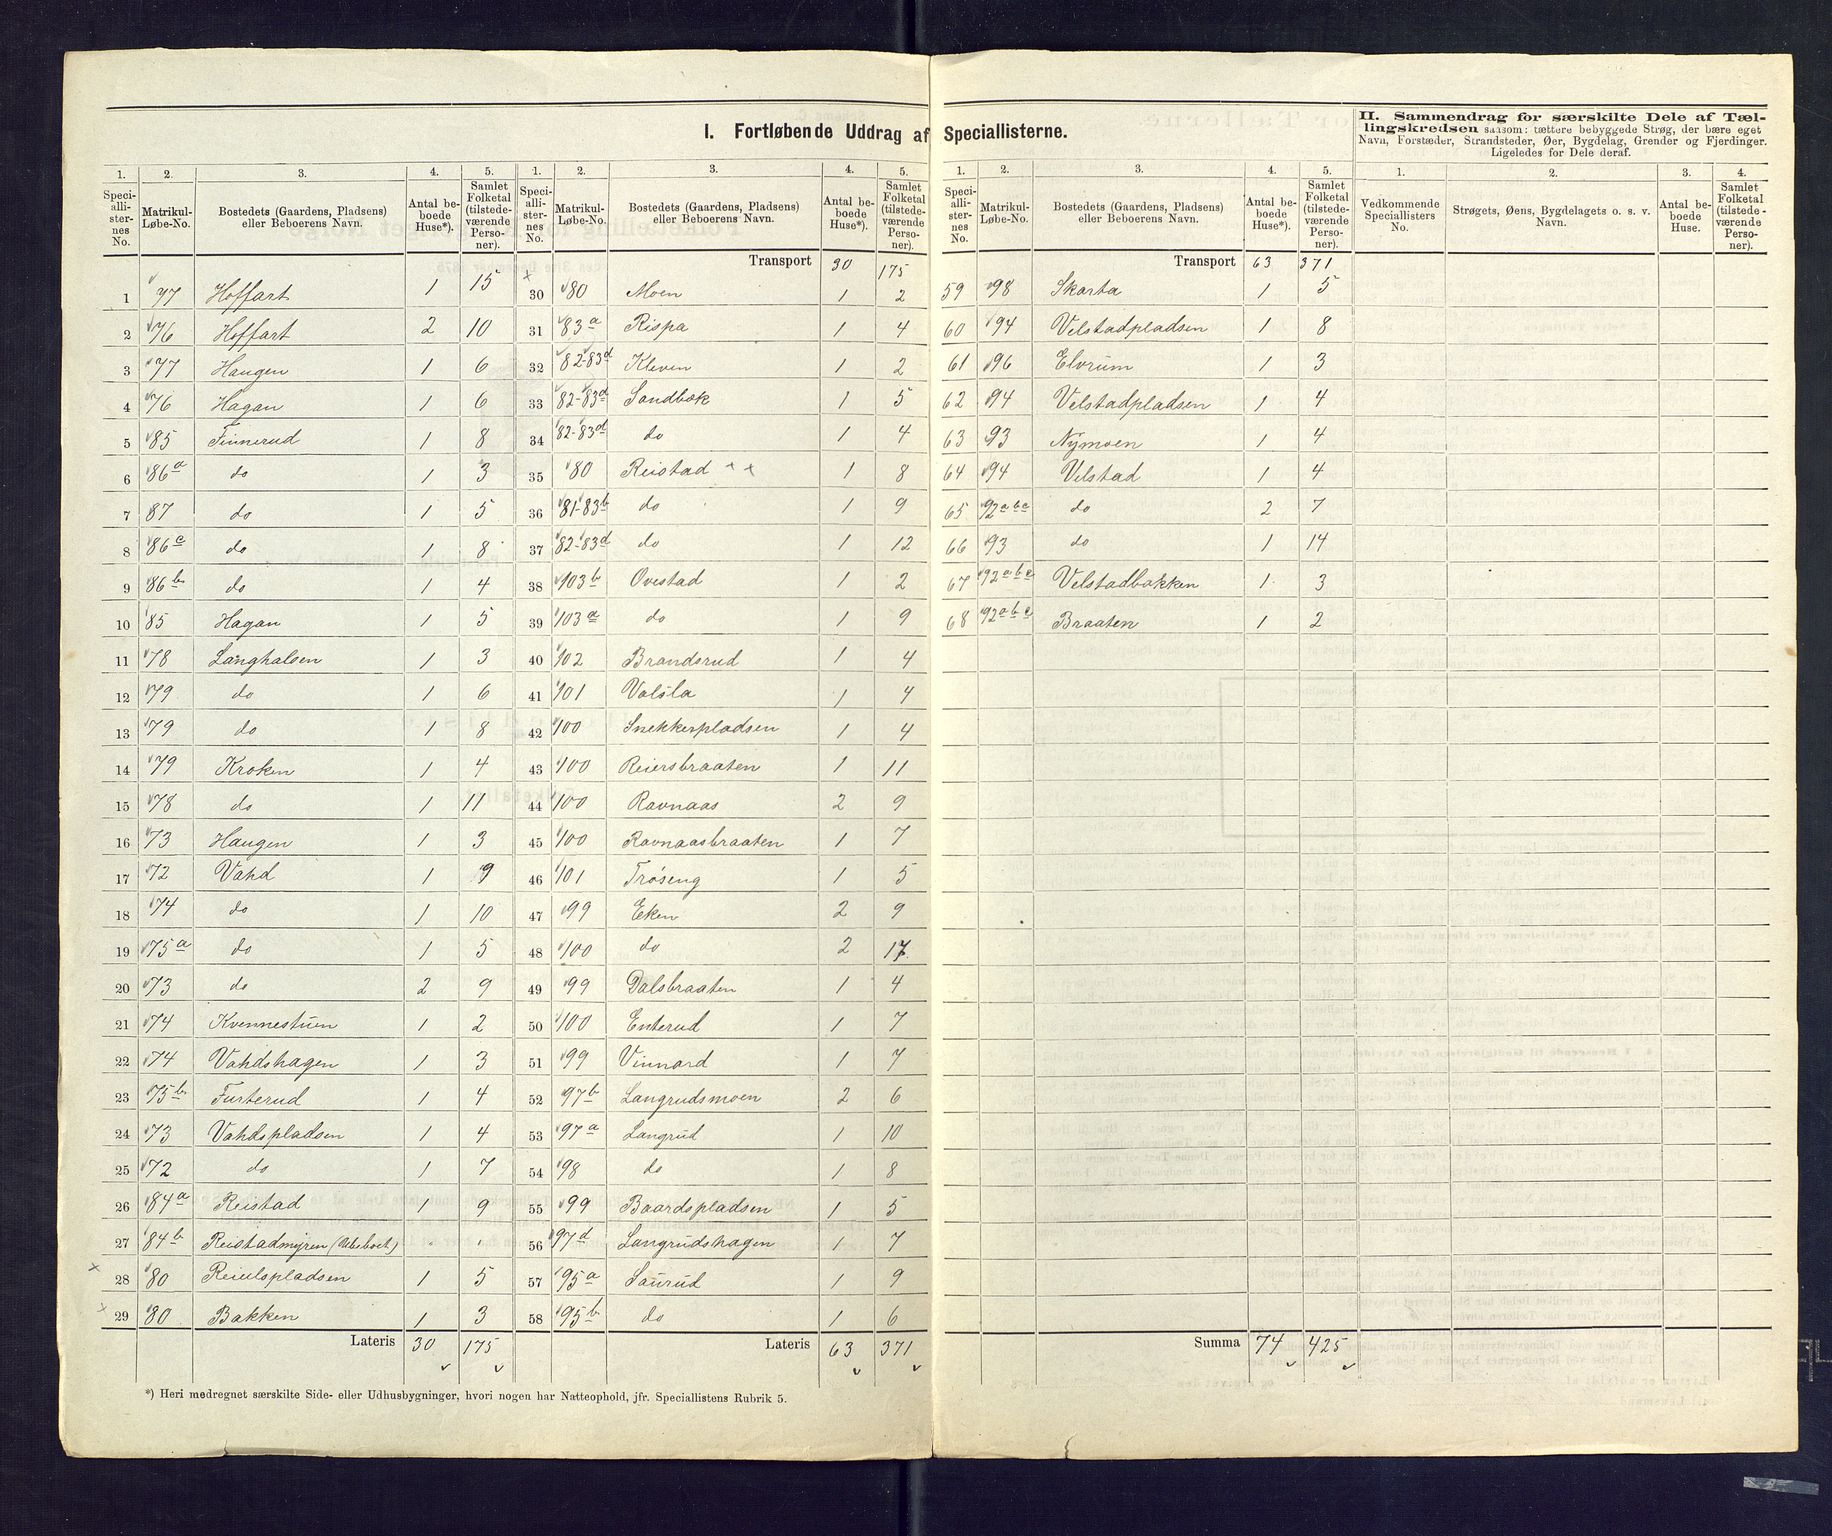 I. Fortløbende Uddrag af Speciallisterne.
II. Sammendrag for særskilte Dele af Tællingskredsen saasom: tættere bebyggede Strøg, der bære eget Navn, Forstæder, Strandsteder, Øer, Bygdelag, Grender og Fjerdinger. Ligeledes for Dele deraf.
1. 2. 3. 4. 5.
Speciallisternes No. Matrikul-Løbe-No. Bostedets (Gaardens, Pladsens) eller Beboerens Navn. Antal beboede Huse*). Samlet Folketal (tilstedeværende Personer).
1 77 Hoffart 1 15
2 76 Hoffart 2 10
3 77 Haugen 1 6
4 76 Hagan 1 6
5 85 Finnerud 1 8
6 86a do 1 3
7 87 do 1 5
8 86c do 1 8
9 86b do 1 4
10 85 Hagan 1 5
11 78 Langhalsen 1 3
12 79 do 1 6
13 79 do 1 8
14 79 Kroken 1 4
15 78 do 1 11
16 73 Haugen 1 3
17 72 Vahd 1 9
18 74 do 1 10
19 75a do 1 5
20 73 do 2 9
21 74 Kvennestuen 1 2
22 74 Vahdshagen 1 3
23 75b Furterud 1 4
24 73 Vahdspladsen 1 4
25 72 do 1 7
26 84a Reistad 1 9
27 84b Reistadmyren (Ubeboet) " "
28 80 Reiulspladsen 1 5
29 80 Bakken 1 3
Lateris 30 175
1. 2. 3. 4. 5.
Speciallisternes No. Matrikul-Løbe-No. Bostedets (Gaardens, Pladsens) eller Beboerens Navn. Antal beboede Huse*). Samlet Folketal (tilstedeværende Personer).
Transport 30 175
30 80 Moen 1 2
31 83a Rispa 1 4
32 82-83d Kleven 1 2
33 82-83d Sandbæk 1 5
34 82-83d do 1 4
35 80 Reistad 1 8
36 81-83b do 1 9
37 82-83d do 1 12
38 103b Ovestad 1 2
39 103a do 1 9
40 102 Brandsrud 1 4
41 101 Valsla 1 4
42 100 Snekkerpladsen 1 4
43 100 Reiersbraaten 1 11
44 100 Ravnaas 2 9
45 100 Ravnaasbraaten 1 7
46 101 Trøseng 1 5
47 99 Eken 2 9
48 100 do 2 17
49 99 Dalsbraaten 1 4
50 100 Enterud 1 7
51 99 Vinnard 1 7
52 97b Langrudsmoen 2 6
53 97a Langrud 1 10
54 98 do 1 8
55 99 Baardspladsen 1 5
56 97d Langrudshagen 1 7
57 95a Saurud 1 9
58 95b do 1 6
Lateris 63 371
1. 2. 3. 4. 5.
Speciallisternes No. Matrikul-Løbe-No. Bostedets (Gaardens, Pladsens) eller Beboerens Navn. Antal beboede Huse*). Samlet Folketal (tilstedeværende Personer).
Transport 63 371
59 98 Skarta 1 5
60 94 Velstadpladsen 1 8
61 96 Elvrum 1 3
62 94 Velstadpladsen 1 4
63 93 Nymoen 1 4
64 94 Velstad 1 4
65 92a b c do 2 7
66 93 do 1 14
67 92a b c Velstadbakken 1 3
68 92a b c Braaten 1 2
Summa 74 425
1. 2. 3. 4.
Vedkommende Speciallisters No. Strøgets, Øens, Bygdelagets o. s. v. Navn. Antal beboede Huse. Samlet Folketal (tilstedeværende Personer).
*) Heri medregnet særskilte Side- eller Udhusbygninger, hvori nogen har Natteophold, jfr. Speciallistens Rubrik 5.